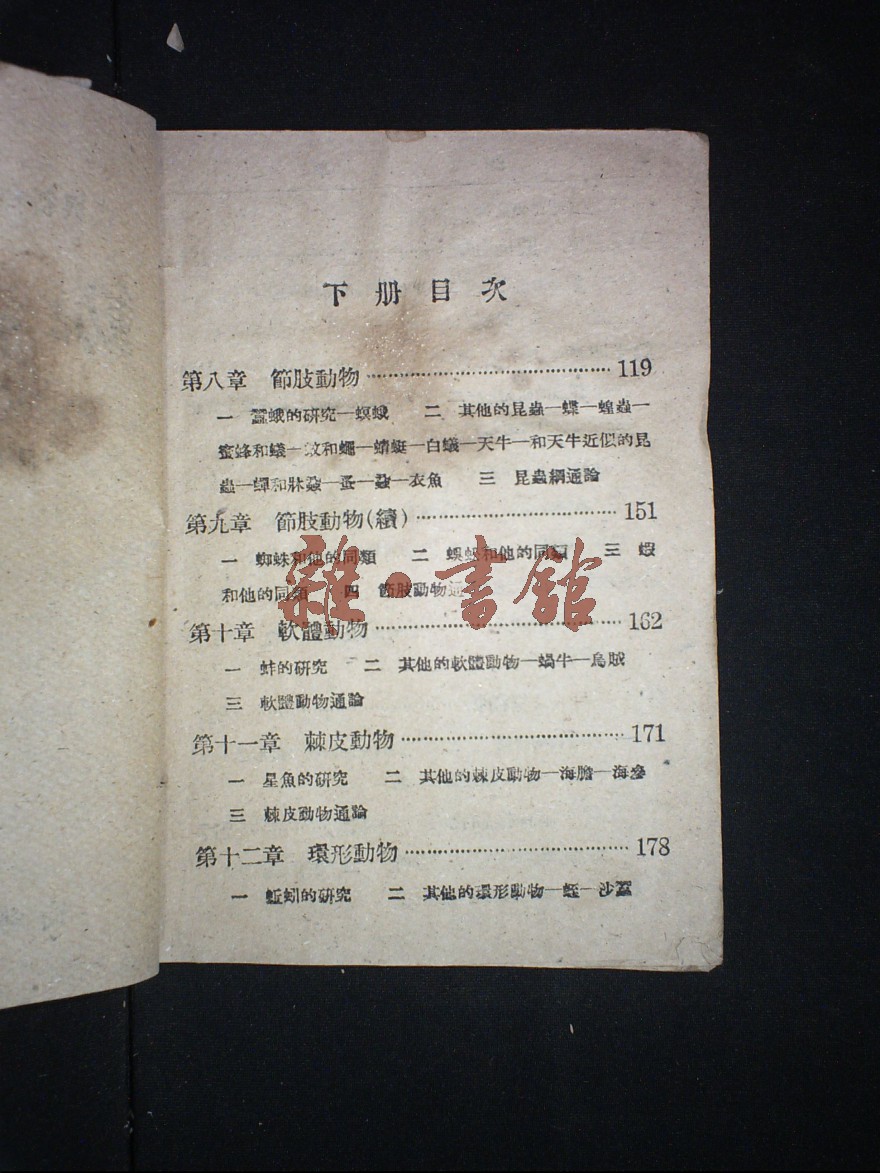 下册目次
第八章 節肢動物 …… 119
一 蠶蛾的研究—螟蛾 二 其他的昆蟲—蝶—蝗蟲—
蜜蜂和蟻—蚊和蠅—蜻蜓—白蟻—天牛—和天牛近似的昆
蟲—蟬和牀蝨—蚤—蝨—衣魚 三 昆蟲綱通論
第九章 節肢動物(續) …… 151
一 蜘蛛和他的同類 二 蜈蚣和他的同類 三 蝦
和他的同類 四 節肢動物通
雜·書館
第十章 軟體動物 …… 162
一 蚌的研究 二 其他的軟體動物—蝸牛—烏賊
三 軟體動物通論
第十一章 棘皮動物 …… 171
一 星魚的研究 二 其他的棘皮動物—海膽—海參
三 棘皮動物通論
第十二章 環形動物 …… 178
一 蚯蚓的研究 二 其他的環形動物—蛭—沙蠶